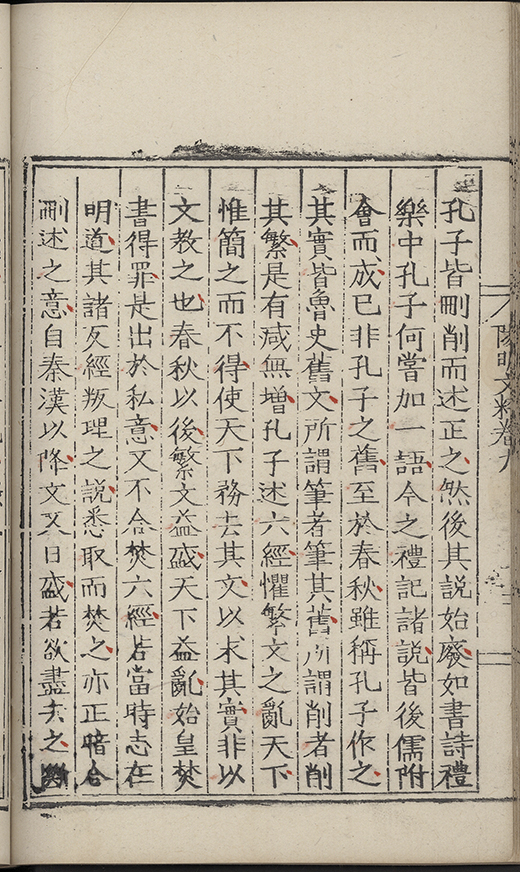 陽明文粹卷九
孔子皆刪削而述正之然後其說始廢如書詩禮
樂中孔子何嘗加一語今之禮記諸說皆後儒附
會而成已非孔子之舊至於春秋雖稱孔子作之
其實皆魯史舊文所謂筆者筆其舊所謂削者削
其繁是有减無增孔子述六經懼繁文之亂天下
惟簡之而不得使天下務去其文以求其實非以
文教之也春秋以後繁文益盛天下益亂始皇焚
書得罪是出於私意又不合焚六經若當時志在
明道其諸反經叛理之說悉取而焚之亦正暗合
刪述之意自秦漢以降文又日盛若欲盡去之斷